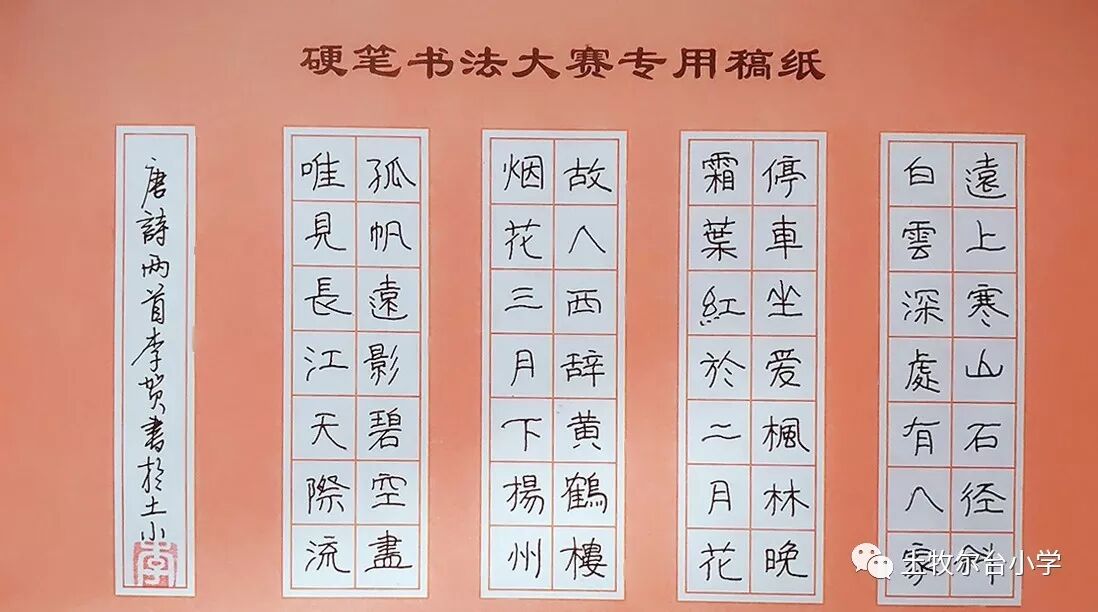 硬笔书法大赛专用稿纸
遠上寒山石径斜
白雲深處有人家
停車坐爱楓林晚
霜葉紅於二月花
故人西辞黄鶴樓
烟花三月下揚州
孤帆遠影碧空盡
唯見長江天際流
唐詩两首李贺書於土小
李
土牧尔台小学